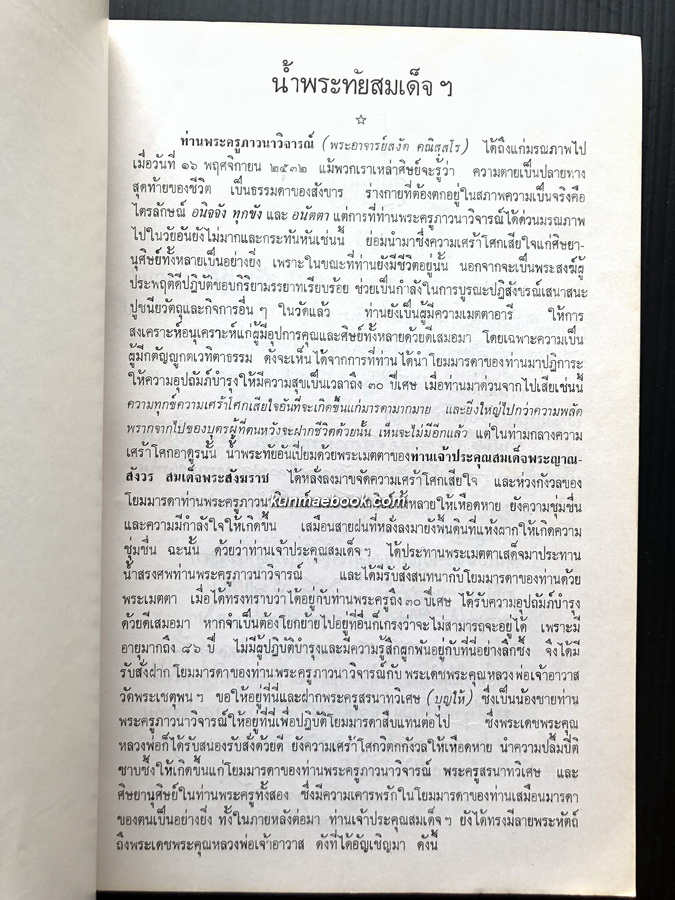 น้ำพระทัยสมเด็จ ฯ
☆
ท่านพระครูภาวนาวิจารณ์ (พระอาจารย์สงัด คณิสฺสโร) ได้ถึงแก่มรณภาพไป
เมื่อวันที่ ๑๖ พฤศจิกายน ๒๕๓๒ แม้พวกเราเหล่าศิษย์จะรู้ว่า ความตายเป็นปลายทาง
สุดท้ายของชีวิต เป็นธรรมดาของสังขาร ร่างกายที่ต้องตกอยู่ในสภาพความเป็นจริงคือ
ไตรลักษณ์ อนิจจัง ทุกขัง และ อนัตตา แต่การที่ท่านพระครูภาวนาวิจารณ์ได้ด่วนมรณภาพ
ไปในวัยอันยังไม่มากและกระทันหันเช่นนี้ ย่อมนำมาซึ่งความเศร้าโศกเสียใจแก่ศิษยา-
นุศิษย์ทั้งหลายเป็นอย่างยิ่ง เพราะในขณะที่ท่านยังมีชีวิตอยู่นั้น นอกจากจะเป็นพระสงฆ์ผู้
ประพฤติดีปฏิบัติชอบกิริยามรรยาทเรียบร้อย ช่วยเป็นกำลังในการบูรณะปฏิสังขรณ์เสนาสนะ
ปูชนียวัตถุและกิจการอื่น ๆ ในวัดแล้ว ท่านยังเป็นผู้มีความเมตตาอารี ให้การ
สงเคราะห์อนุเคราะห์แก่ผู้มีอุปการคุณและศิษย์ทั้งหลายด้วยดีเสมอมา โดยเฉพาะความเป็น
ผู้มีกตัญญูกตเวทิตาธรรม ดังจะเห็นได้จากการที่ท่านได้นำโยมมารดาของท่านมาปฏิการะ
ให้ความอุปถัมภ์บำรุงให้มีความสุขเป็นเวลาถึง ๓๐ ปีเศษ เมื่อท่านมาด่วนจากไปเสียเช่นนี้
ความทุกข์ความเศร้าโศกเสียใจอันที่จะเกิดขึ้นแก่มารดามากมาย และยิ่งใหญ่ไปกว่าความพลัด
พรากจากไปของบุตรผู้ที่ตนหวังจะฝากชีวิตด้วยนั้น เห็นจะไม่มีอีกแล้ว แต่ในท่ามกลางความ
เศร้าโศกอาดูรนั้น น้ำพระทัยอันเปี่ยมด้วยพระเมตตาของท่านเจ้าประคุณสมเด็จพระญาณ-
สังวร สมเด็จพระสังฆราช ได้หลั่งลงมาขจัดความเศร้าโศกเสียใจ และห่วงกังวลของ
โยมมารดาท่านพระครูภาวนา kunmaebook.com ทั้งหลายให้เหือดหาย ยังความชุ่มชื่น
และความมีกำลังใจให้เกิดขึ้น เสมือนสายฝนที่หลั่งลงมายังพื้นดินที่แห้งผากให้เกิดความ
ชุ่มชื่น ฉะนั้น ด้วยว่าท่านเจ้าประคุณสมเด็จ ฯ ได้ประทานพระเมตตาเสด็จมาประทาน
น้ำสรงศพท่านพระครูภาวนาวิจารณ์ และได้มีรับสั่งสนทนากับโยมมารดาของท่านด้วย
พระเมตตา เมื่อได้ทรงทราบว่าได้อยู่กับท่านพระครูถึง ๓๐ ปีเศษ ได้รับความอุปถัมภ์บำรุง
ด้วยดีเสมอมา หากจำเป็นต้องโยกย้ายไปอยู่ที่อื่นก็เกรงว่าจะไม่สามารถจะอยู่ได้ เพราะมี
อายุมากถึง ๘๖ ปี ไม่มีผู้ปฏิบัติบำรุงและมีความรู้สึกผูกพันอยู่กับที่นี่อย่างลึกซึ้ง จึงได้มี
รับสั่งฝากโยมมารดาของท่านพระครูภาวนาวิจารณ์กับพระเดชพระคุณหลวงพ่อเจ้าอาวาส
วัดพระเชตุพน ฯ ขอให้อยู่ที่นี่และฝากพระครูสรนาทวิเศษ (บุญให้) ซึ่งเป็นน้องชายท่าน
พระครูภาวนาวิจารณ์ให้อยู่ที่นี่เพื่อปฏิบัติโยมมารดาสืบแทนต่อไป ซึ่งพระเดชพระคุณ
หลวงพ่อก็ได้รับสนองรับสั่งด้วยดี ยังความเศร้าโศกวิตกกังวลให้เหือดหาย นำความปลื้มปีติ
ซาบซึ้งให้เกิดขึ้นแก่โยมมารดาของท่านพระครูภาวนาวิจารณ์ พระครูสรนาทวิเศษ และ
ศิษยานุศิษย์ในท่านพระครูทั้งสอง ซึ่งมีความเคารพรักในโยมมารดาของท่านเสมือนมารดา
ของตนเป็นอย่างยิ่ง ทั้งในภายหลังต่อมา ท่านเจ้าประคุณสมเด็จ ฯ ยังได้ทรงมีลายพระหัตถ์
ถึงพระเดชพระคุณหลวงพ่อเจ้าอาวาส ดังที่ได้อัญเชิญมา ดังนี้